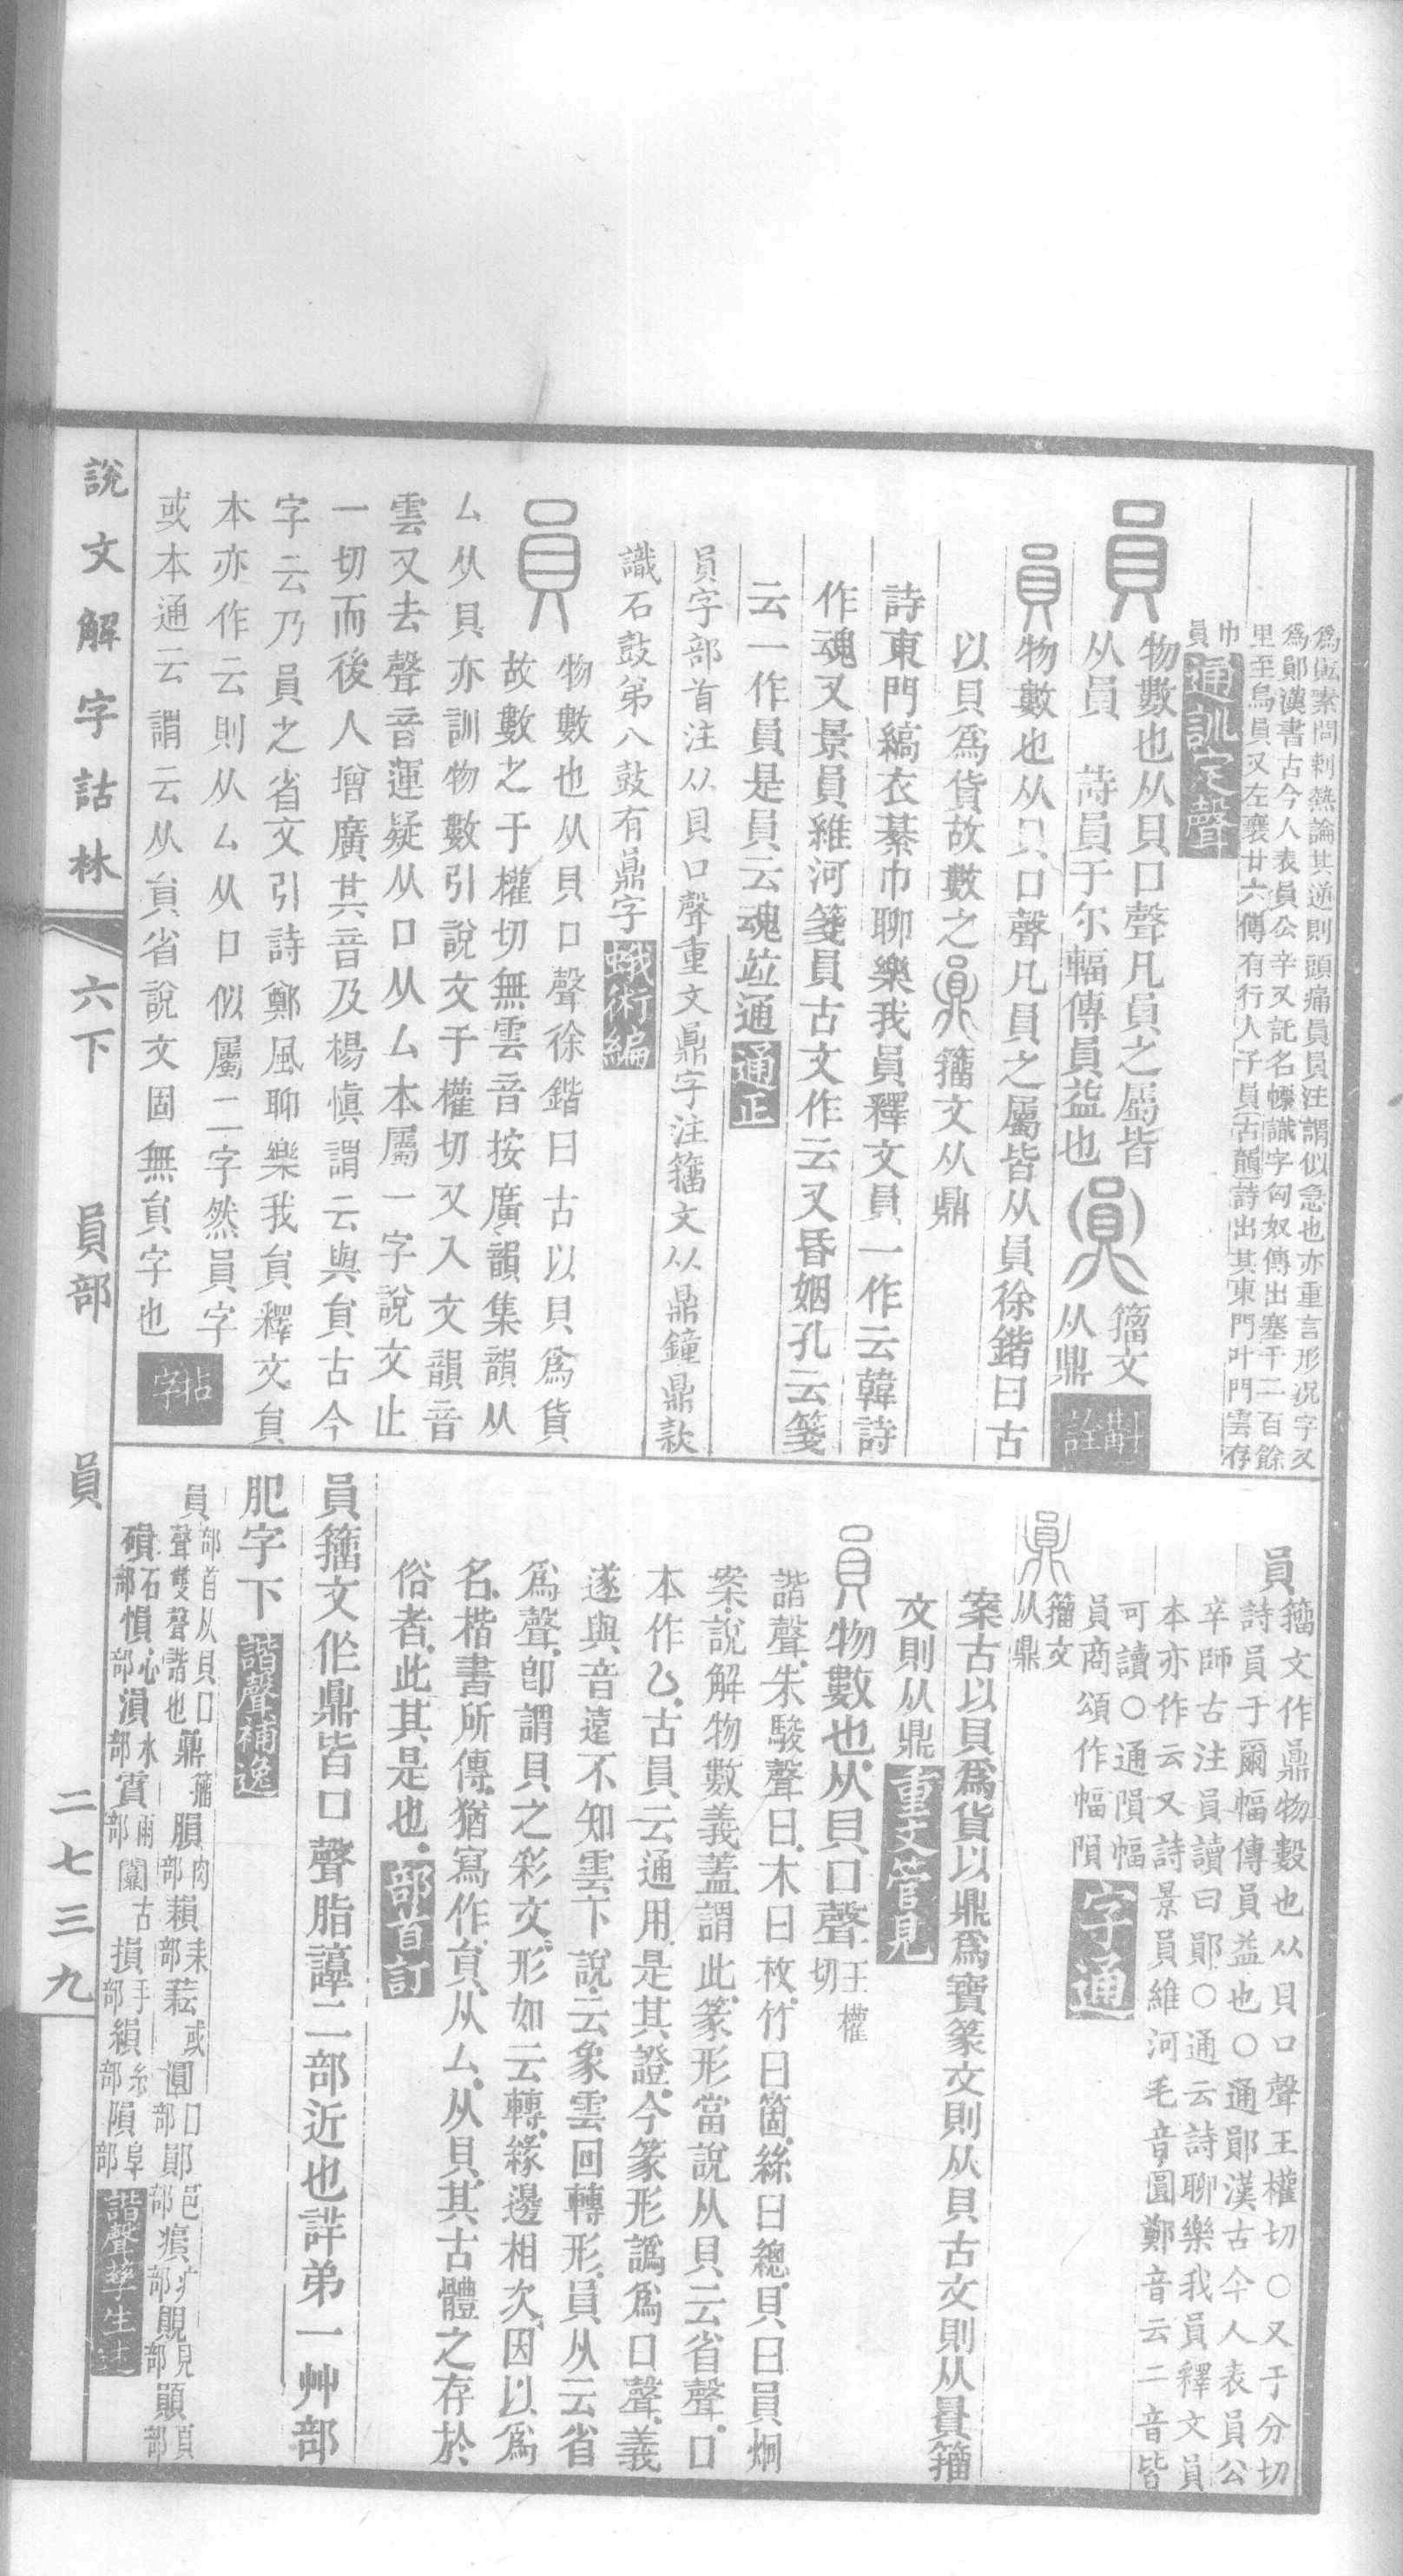 爲傊素問刺熱論其逆則頭痛員員注謂似急也亦重言形况字又
爲鄖漢書古今人表員公辛又託名幖識字匈奴傳出塞千二百餘
里至烏員又左襄廿六傳有行人子員古韻詩出其東門叶門雲存
巾員
通訓定聲
員
物數也从貝口聲凡員之屬皆
从員　詩員于尔輻傳員益也
籀文
从鼎
斠詮
員物數也从貝口聲凡員之屬皆从員徐鍇曰古
以貝爲貨故數之鼎籀文从鼎
詩東門縞衣綦巾聊樂我員釋文員一作云韓詩
作魂又景員維河箋員古文作云又昏姻孔云箋
云一作員是員云魂竝通通正
員字部首注从貝口聲重文鼎字注籀文从鼎鐘鼎款
識石鼓第八鼓有鼎字蛾術編
員
物數也从貝口聲徐鍇曰古以貝爲貨
故數之于權切無雲音按廣韻集韻从
厶从貝亦訓物數引說文于權切又入文韻音
雲又去聲音運疑从口从厶本屬一字說文止
一切而後人增廣其音及楊愼謂云與負古今
字云乃員之省文引詩鄭風聊樂我負釋文負
本亦作云則从厶从口似屬二字然員字
或本通云謂云从負省說文固無負字也拈字
員籀文作鼎物數也从貝口聲王權切○又于分切
詩員于爾幅傳員益也○通鄖漢古今人表員公
辛師古注員讀曰鄖○通云詩聊樂我員釋文員
本亦作云又詩景員維河毛音圓鄭音云二音皆
可讀○通隕幅
員商頌作幅隕
字通
籀文
从鼎
案古以貝爲貨以鼎爲寶篆文則从貝古文則从鼎籀
文則从鼎重文管見
員物數也从貝口聲王權切
諧聲朱駿聲曰木曰枚竹曰箇絲曰總貝曰員炯
案說解物數義蓋謂此篆形當說从貝云省聲口
本作乙古員云通用是其證今篆形譌爲口聲義
遂與音遠不知雲下說云象雲回轉形員从云省
爲聲卽謂貝之彩文形如云轉緣邊相次因以爲
名楷書所傳猶寫作負从厶从貝其古體之存於
俗者此其是也部首訂
員籀文作鼎皆口聲脂諄二部近也詳弟一艸部
肥字下諧聲補逸
員部首从貝口聲雙聲諧也鼎籀䐣肉部䫟耒部蒷或圓口部鄖邑部㾓疒部覞見部顚頁部
磒石部愪心部溳水部霣雨部䦾古損手部縜糸部隕阜部諧聲孳生述
說文解字詁林
六下
員部
員
二七三九